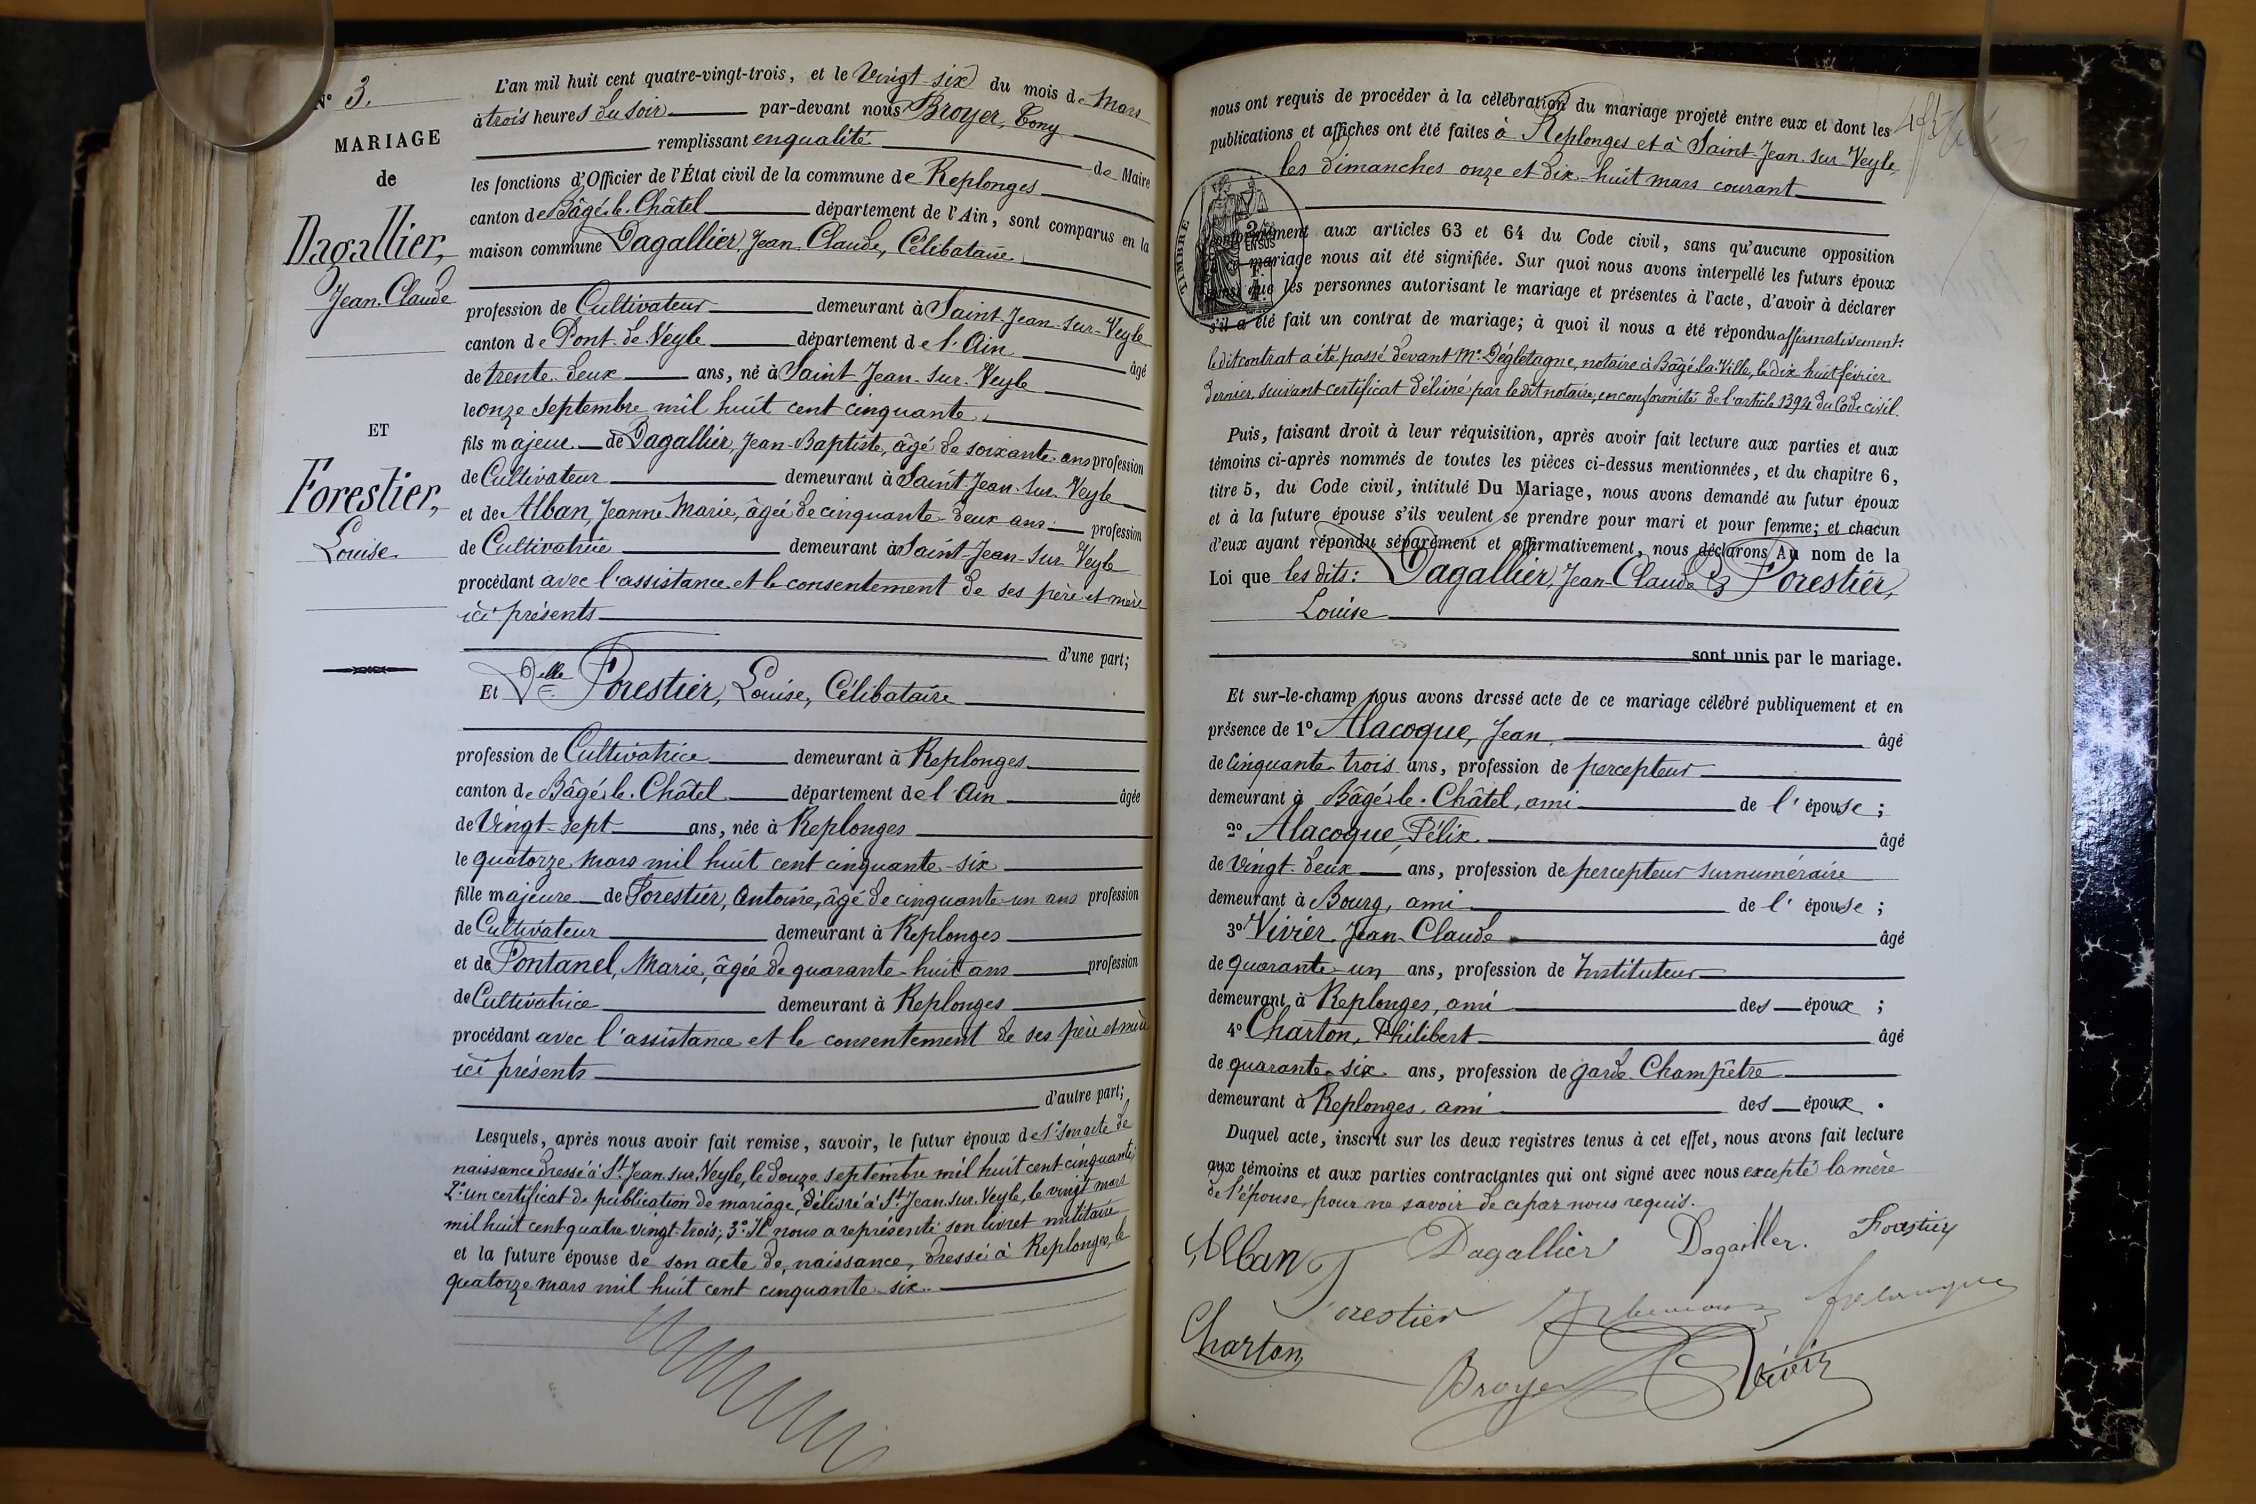 N° 3.
MARIAGE
de
Dagallier,
Jean-Claude
ET
Forestier,
Louise
L'an mil huit cent quatre-vingt-trois, et le Vingt-six du mois de Mars
à trois heures du soir par-devant nous Broyer, Tony
remplissant en qualité de Maire
les fonctions d'Officier de l'État civil de la commune de Replonges
canton de Bâgé-le-Châtel département de l'Ain, sont comparus en la
maison commune Dagallier Jean-Claude, Célibataire
profession de Cultivateur demeurant à Saint-Jean-sur-Veyle
canton de Pont-de-Veyle département de l'Ain âgé
de trente-deux ans, né à Saint-Jean-sur-Veyle
le onze septembre mil huit cent cinquante
fils majeur de Dagallier, Jean-Baptiste, âgé de soixante ans profession
de Cultivateur demeurant à Saint-Jean-sur-Veyle
et de Alban, Jeanne-Marie, âgée de cinquante-deux ans profession
de Cultivatrice demeurant à Saint-Jean-sur-Veyle
procédant avec l'assistance et le consentement de ses père et mère
ici présents
d'une part;
Et Delle Forestier, Louise, Célibataire
profession de Cultivatrice demeurant à Replonges
canton de Bâgé-le-Châtel département de l'Ain âgée
de Vingt-sept ans, née à Replonges
le quatorze mars mil huit cent cinquante-six
fille majeure de Forestier, Antoine, âgé de cinquante-un ans profession
de Cultivateur demeurant à Replonges
et de Fontanel, Marie, âgée de quarante-huit ans profession
de Cultivatrice demeurant à Replonges
procédant avec l'assistance et le consentement de ses père et mère
ici présents
d'autre part;
Lesquels, après nous avoir fait remise, savoir, le futur époux de 1° son acte de
naissance dressé à St Jean-sur-Veyle, le douze septembre mil huit cent cinquante;
2° un certificat de publication de mariage, délivré à St Jean-sur-Veyle, le vingt mars
mil huit cent quatre vingt-trois; 3° Il nous a représenté son livret militaire
et la future épouse de son acte de naissance, dressé à Replonges, le
quatorze mars mil huit cent cinquante-six.
nous ont requis de procéder à la célébration du mariage projeté entre eux et dont les
publications et affiches ont été faites à Replonges et à Saint-Jean-sur-Veyle,
les dimanches onze et dix-huit mars courant
TIMBRE
conformément aux articles 63 et 64 du Code civil, sans qu'aucune opposition
mariage nous ait été signifiée. Sur quoi nous avons interpellé les futurs époux
ainsi que les personnes autorisant le mariage et présentes à l'acte, d'avoir à déclarer
s'il a été fait un contrat de mariage; à quoi il nous a été répondu affirmativement:
le dit contrat a été passé devant Me Déglétagne, notaire à Bâgé-la-Ville, le dix huit février
dernier, suivant certificat délivré par le dit notaire, en conformité de l'article 1394 du Code civil.
Puis, faisant droit à leur réquisition, après avoir fait lecture aux parties et aux
témoins ci-après nommés de toutes les pièces ci-dessus mentionnées, et du chapitre 6,
titre 5, du Code civil, intitulé Du Mariage, nous avons demandé au futur époux
et à la future épouse s'ils veulent se prendre pour mari et pour femme; et chacun
d'eux ayant répondu séparément et affirmativement, nous déclarons Au nom de la
Loi que les dits: Dagallier, Jean-Claude & Forestier,
Louise
sont unis par le mariage.
Et sur-le-champ nous avons dressé acte de ce mariage célébré publiquement et en
présence de 1° Alacoque, Jean âgé
de Cinquante-trois ans, profession de percepteur
demeurant à Bâgé-le-Châtel, ami de l'épouse;
2° Alacoque, Félix âgé
de Vingt-deux ans, profession de percepteur surnuméraire
demeurant à Bourg, ami de l'épouse;
3° Vivier, Jean-Claude âgé
de quarante-un ans, profession de Instituteur
demeurant à Replonges, ami des époux;
4° Charton, Philibert âgé
de quarante-six ans, profession de garde-Champêtre
demeurant à Replonges, ami des époux.
Duquel acte, inscrit sur les deux registres tenus à cet effet, nous avons fait lecture
aux témoins et aux parties contractantes qui ont signé avec nous excepté la mère
de l'épouse, pour ne savoir de ce par nous requis.
Alban Dagallier Dagallier. Forestier
Forestier
Charton
Broyer Vivier